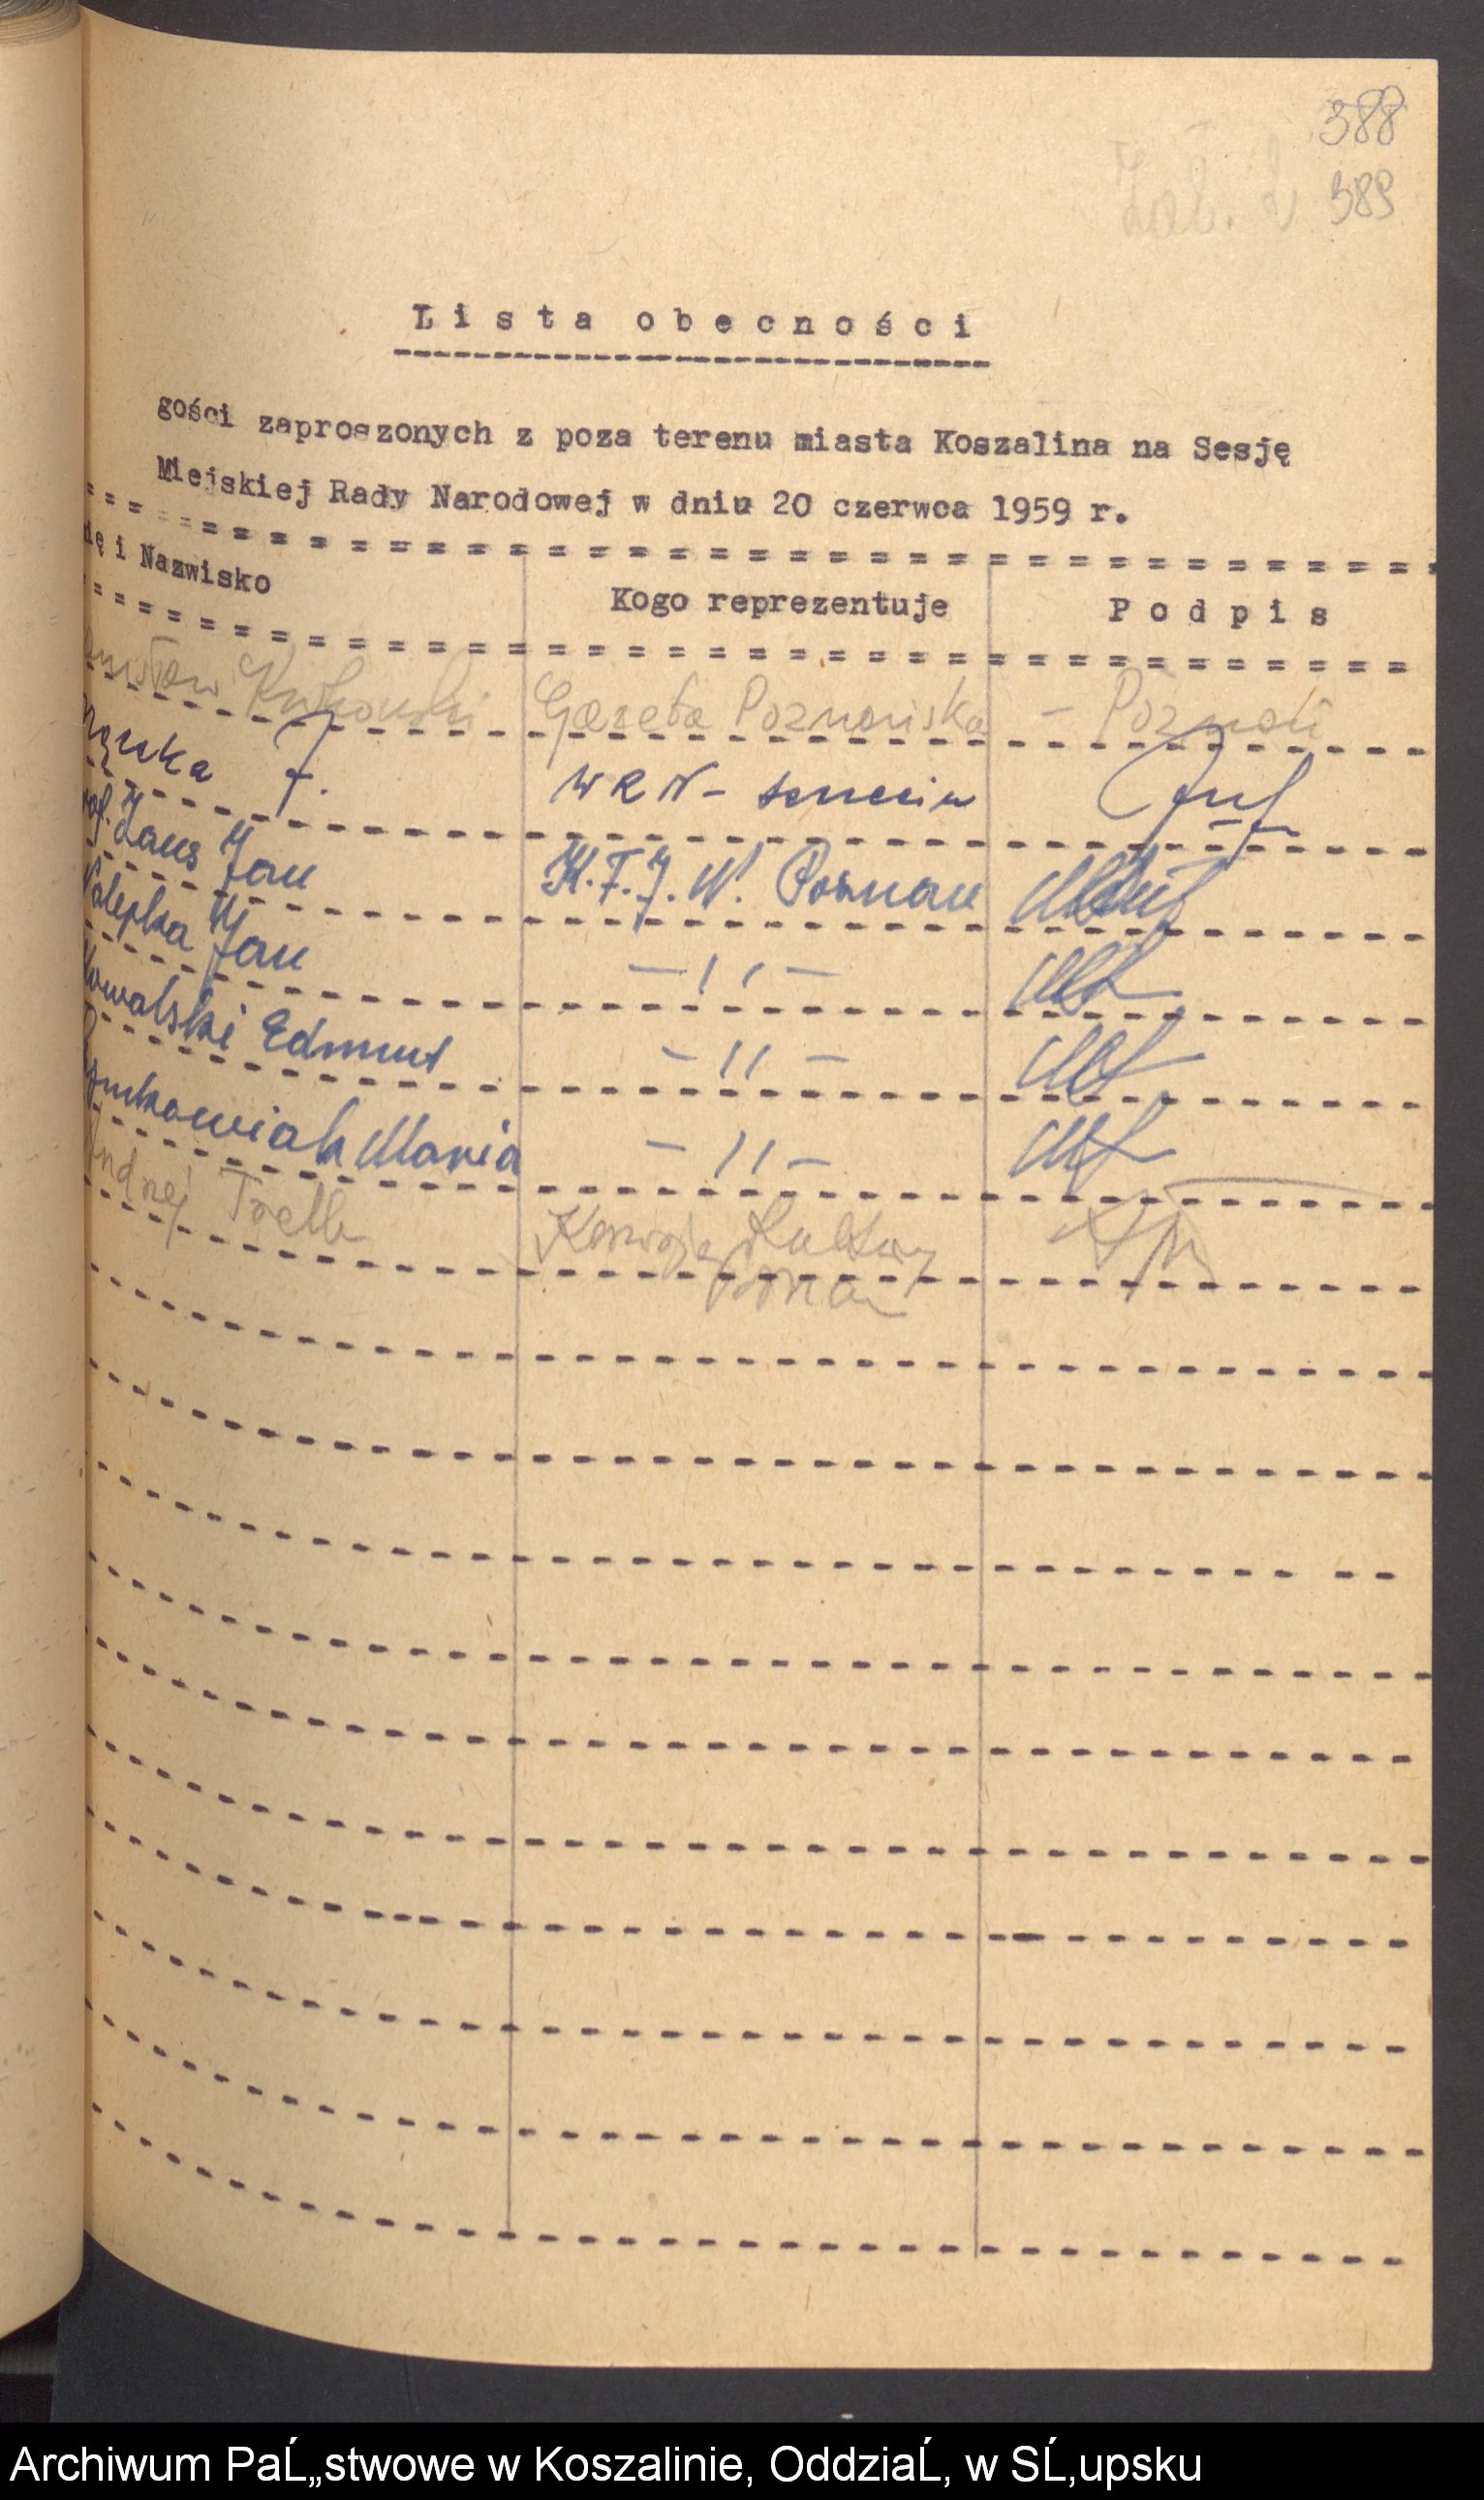 388
Zał. 2 389
Lista obecności
gości zaproszonych z poza terenu miasta Koszalina na Sesję
Miejskiej Rady Narodowej w dniu 20 czerwca 1959 r.
ię i Nazwisko Kogo reprezentuje Podpis
Gazeta Poznańska - Poznań
J. WRN - Szczecin
Zaus Jan K.F.J.N. Poznań
Nalepka Jan - " -
Kowalski Edmunt - " -
Maria - " -
Andrzej Trella
Archiwum PaĹ„stwowe w Koszalinie, OddziaĹ‚ w SĹ‚upsku